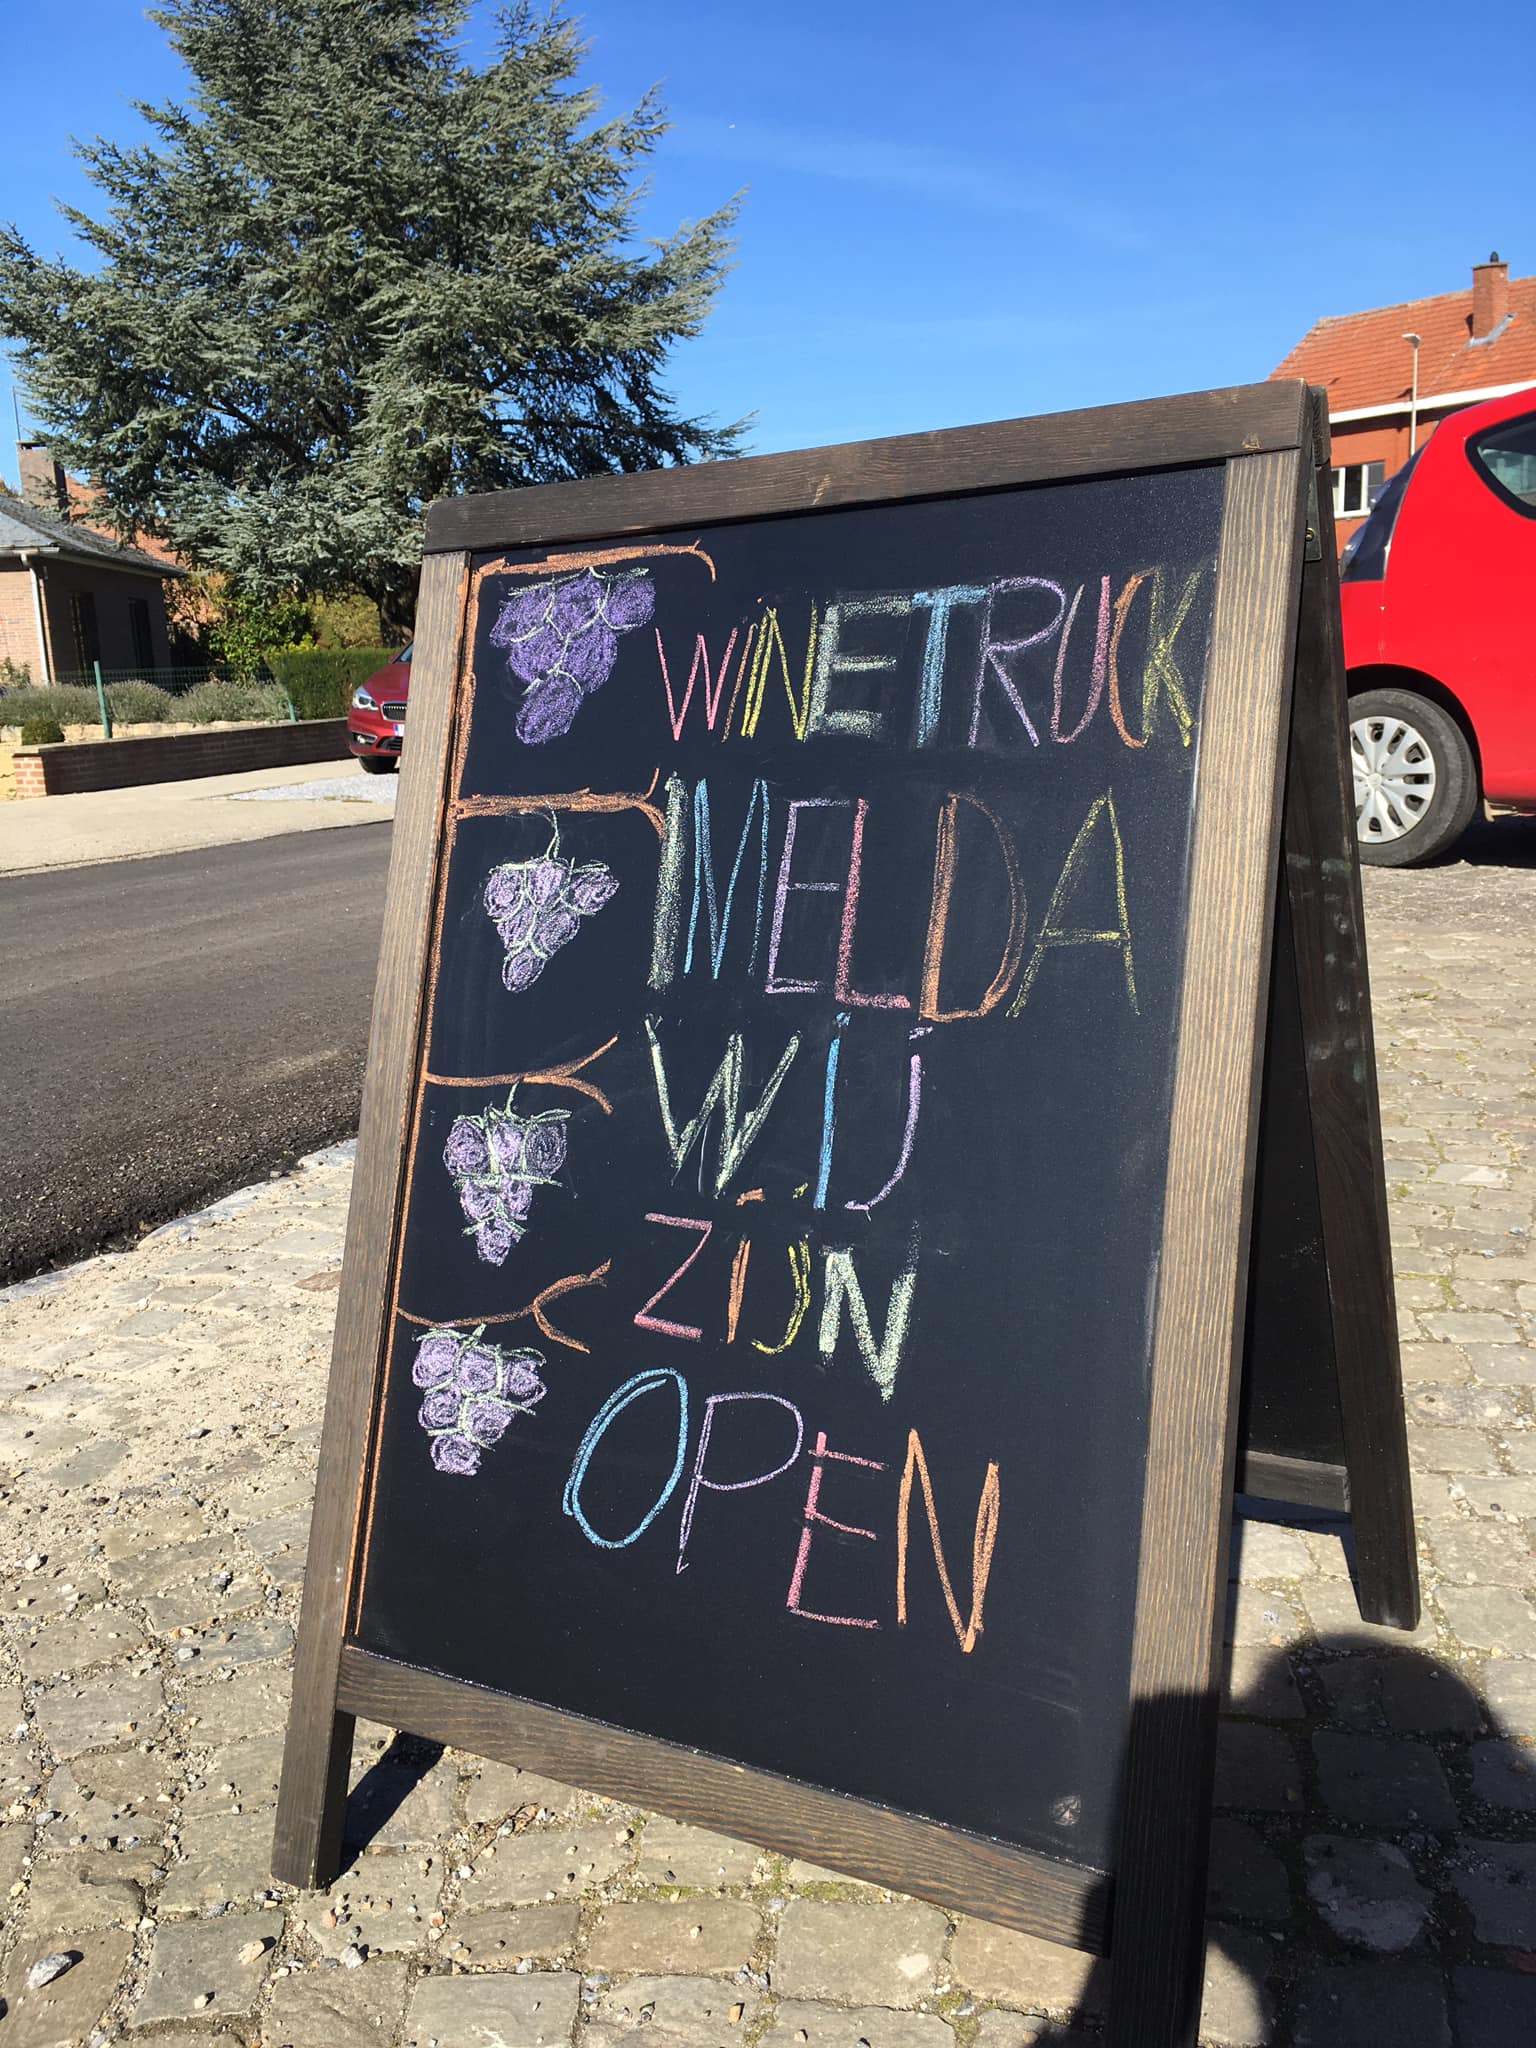 WINETRUCK
IMELDA
WIJ
ZIJN
OPEN